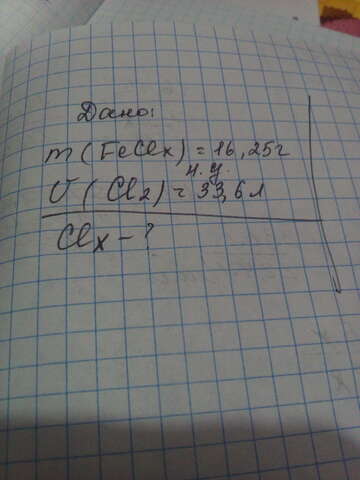 Дано:
m (FeClx) = 16,25г
н.у.
V (Cl2) = 33,6л
Clx - ?